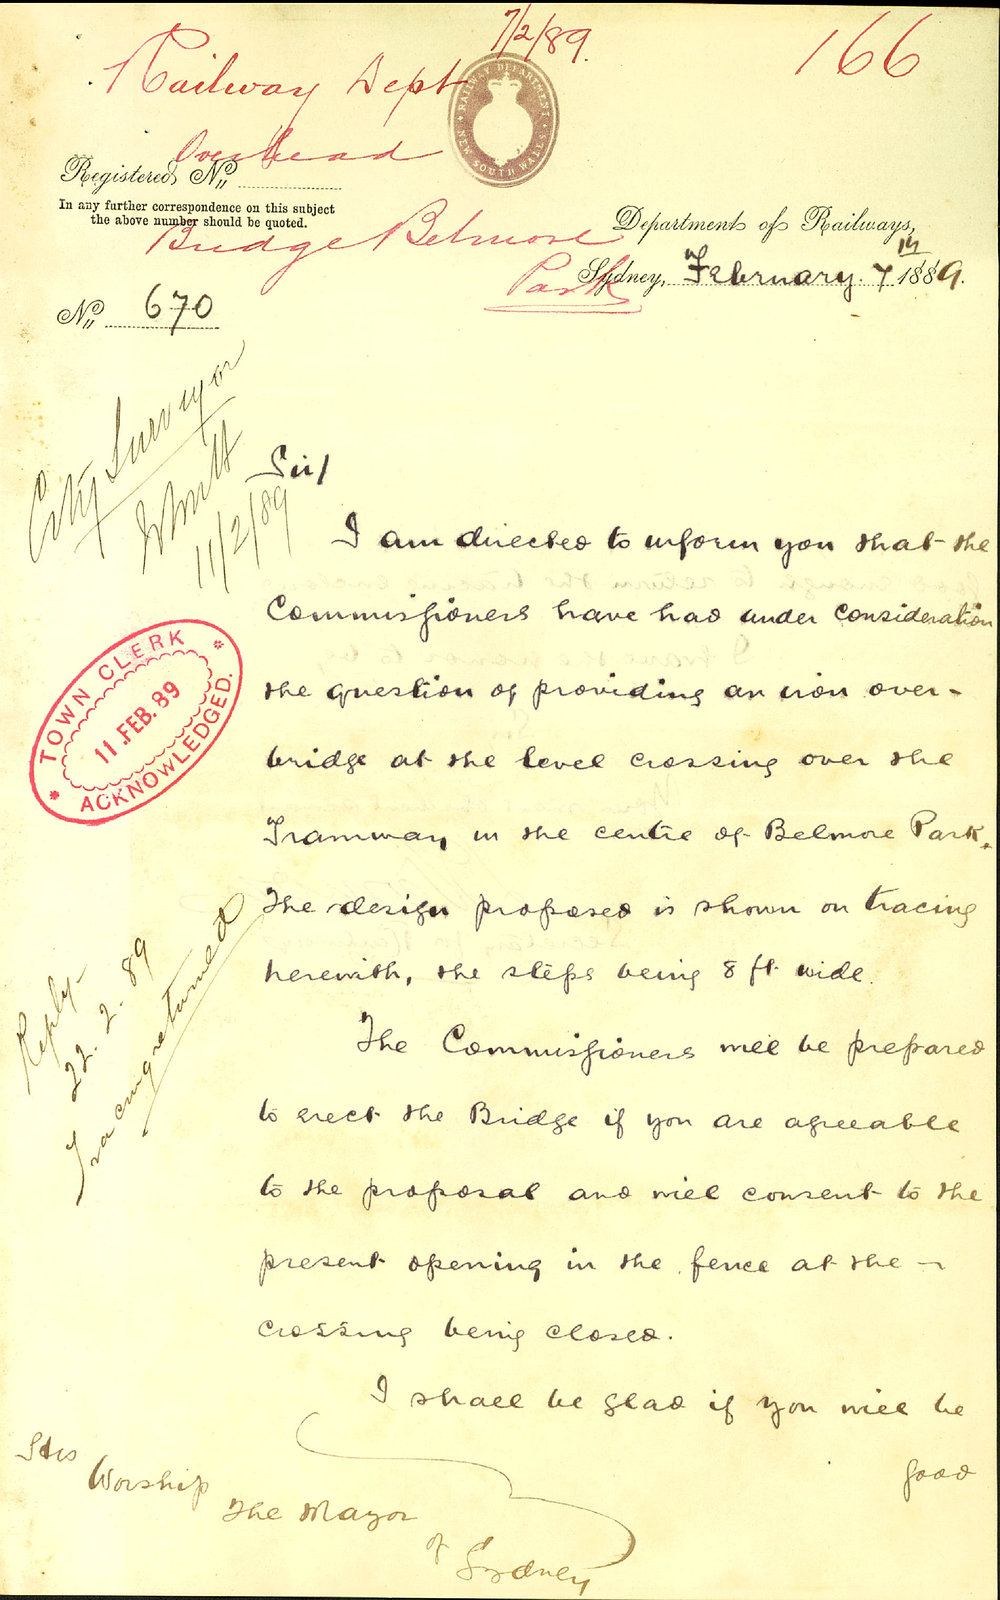 7/2/89.
166
Railway Dept
Overhead
Bridge Belmore
Park
RAILWAY DEPARTMENT
NEW SOUTH WALES
Registered No.
In any further correspondence on this subject
the above number should be quoted.
Department of Railways,
Sydney, February 7th 1889.
No. 670
City Surveyor
11/2/89
Sir/
I am directed to inform you that the
Commissioners have had under consideration
the question of providing an iron over-
bridge at the level crossing over the
Tramway in the centre of Belmore Park.
The design proposed is shown on tracing
herewith, the steps being 8 ft wide.
The Commissioners will be prepared
to erect the Bridge if you are agreeable
to the proposal and will consent to the
present opening in the fence at the
crossing being closed.
I shall be glad if you will be
good
TOWN CLERK
11 FEB. 89
ACKNOWLEDGED.
Reply
22.2.89
Tracing returned
His
Worship
The Mayor
of
Sydney